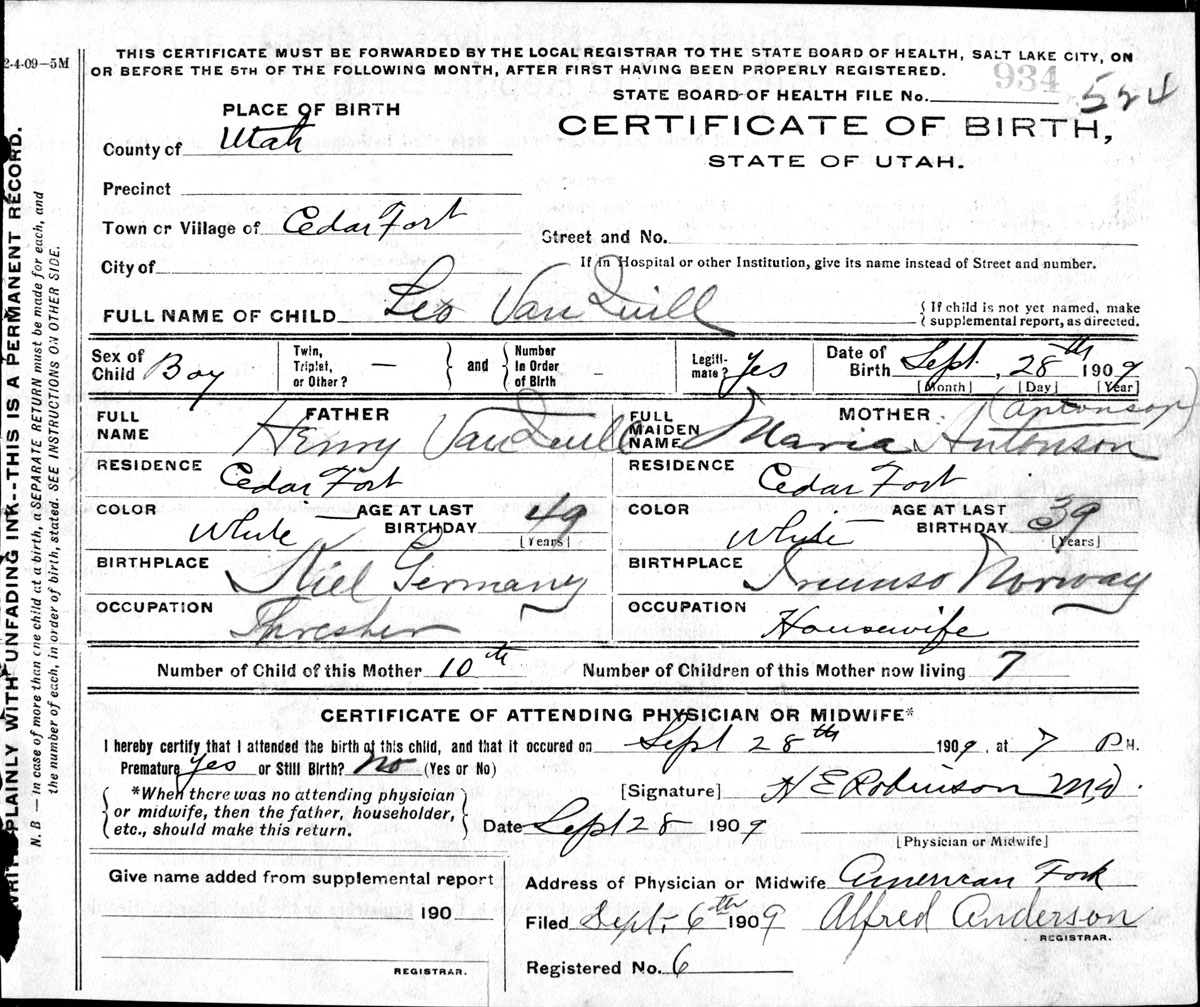 2-4-09—5M
THIS CERTIFICATE MUST BE FORWARDED BY THE LOCAL REGISTRAR TO THE STATE BOARD OF HEALTH, SALT LAKE CITY, ON
OR BEFORE THE 5TH OF THE FOLLOWING MONTH, AFTER FIRST HAVING BEEN PROPERLY REGISTERED.
934
STATE BOARD OF HEALTH FILE No. 524
CERTIFICATE OF BIRTH,
STATE OF UTAH.
PLACE OF BIRTH
County of Utah
Precinct
Town or Village of Cedar Fort
Street and No.
City of
If in Hospital or other Institution, give its name instead of Street and number.
FULL NAME OF CHILD Leo Van Quill
{ If child is not yet named, make
supplemental report, as directed.
Sex of Child Boy
Twin, Triplet, or Other? —
and
Number in Order of Birth —
Legiti-mate? Yes
Date of Birth Sept. 28th 1909
[Month] [Day] [Year]
FATHER
FULL NAME Henry Van Quill
RESIDENCE
Cedar Fort
COLOR White — AGE AT LAST BIRTHDAY 49
[Years]
BIRTHPLACE Kiel Germany
OCCUPATION Thresher
MOTHER (Antonson)
FULL MAIDEN NAME Maria Antonson
RESIDENCE
Cedar Fort
COLOR White — AGE AT LAST BIRTHDAY 39
[Years]
BIRTHPLACE Norway
OCCUPATION
Housewife
Number of Child of this Mother 10th
Number of Children of this Mother now living 7
CERTIFICATE OF ATTENDING PHYSICIAN OR MIDWIFE*
I hereby certify that I attended the birth of this child, and that it occured on Sept 28th 1909, at 7 P M.
Premature Yes or Still Birth? No (Yes or No)
*When there was no attending physician
or midwife, then the father, householder,
etc., should make this return.
[Signature] H E Robinson MD.
Date Sept 28 1909
[Physician or Midwife]
Give name added from supplemental report
190
REGISTRAR.
Address of Physician or Midwife American Fork
Filed Sept. 6th 1909 Alfred Anderson
REGISTRAR.
Registered No. 6
WRITE PLAINLY WITH UNFADING INK--THIS IS A PERMANENT RECORD.
N. B — In case of more than one child at a birth, a SEPARATE RETURN must be made for each, and
the number of each, in order of birth, stated. SEE INSTRUCTIONS ON OTHER SIDE.